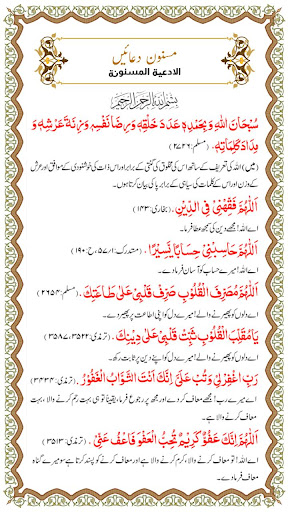 مسنون دعائیں
الادعیة المسنونة
بسم الله الرحمن الرحيم
سُبْحَانَ اللهِ وَبِحَمْدِهٖ عَدَدَ خَلْقِهٖ وَرِضَا نَفْسِهٖ وَزِنَةَ عَرْشِهٖ وَ
مِدَادَ كَلِمَاتِهٖ. (مسلم: ۲۷۲۶)
(میں) اللہ کی تعریف کے ساتھ اس کی مخلوق کی گنتی کے برابر اور اس ذات کی خوشنودی کے موافق اور عرش
کے وزن اور اس کے کلمات کی سیاہی کے برابر پاکی بیان کرتا ہوں۔
اَللّٰهُمَّ فَقِّهْنِيْ فِي الدِّيْنِ. (بخاری: ۱۴۳)
اے اللہ! مجھے دین کی سمجھ عطا فرما۔
اَللّٰهُمَّ حَاسِبْنِيْ حِسَابًا يَّسِيْرًا. (مستدرک: ۵۷/۱، ح: ۱۹۰)
اے اللہ! میرے حساب کو آسان فرما دے۔
اَللّٰهُمَّ مُصَرِّفَ الْقُلُوْبِ صَرِّفْ قَلْبِيْ عَلٰى طَاعَتِكَ. (مسلم: ۲۶۵۴)
اے دلوں کو پھیرنے والے! میرے دل کو اپنی اطاعت پر پھیر دے۔
يَا مُقَلِّبَ الْقُلُوْبِ ثَبِّتْ قَلْبِيْ عَلٰى دِيْنِكَ. (ترمذی: ۳۵۲۲، ۳۵۸۷)
اے دلوں کو پھیرنے والے! میرے دل کو اپنے دین پر ثابت رکھ۔
رَبِّ اغْفِرْ لِيْ وَتُبْ عَلَيَّ اِنَّكَ اَنْتَ التَّوَّابُ الْغَفُوْرُ. (ترمذی: ۳۴۳۴)
اے میرے رب! مجھے معاف کر دے اور مجھ پر رجوع فرما، یقیناً تو ہی بہت رحم کرنے والا، بہت
معاف کرنے والا ہے۔
اَللّٰهُمَّ اِنَّكَ عَفُوٌّ كَرِيْمٌ تُحِبُّ الْعَفْوَ فَاعْفُ عَنِّيْ. (ترمذی: ۳۵۱۳)
اے اللہ! تو معاف کرنے والا، کرم کرنے والا ہے، اور معاف کرنے کو پسند کرتا ہے سو میرے گناہ
معاف فرما دے۔